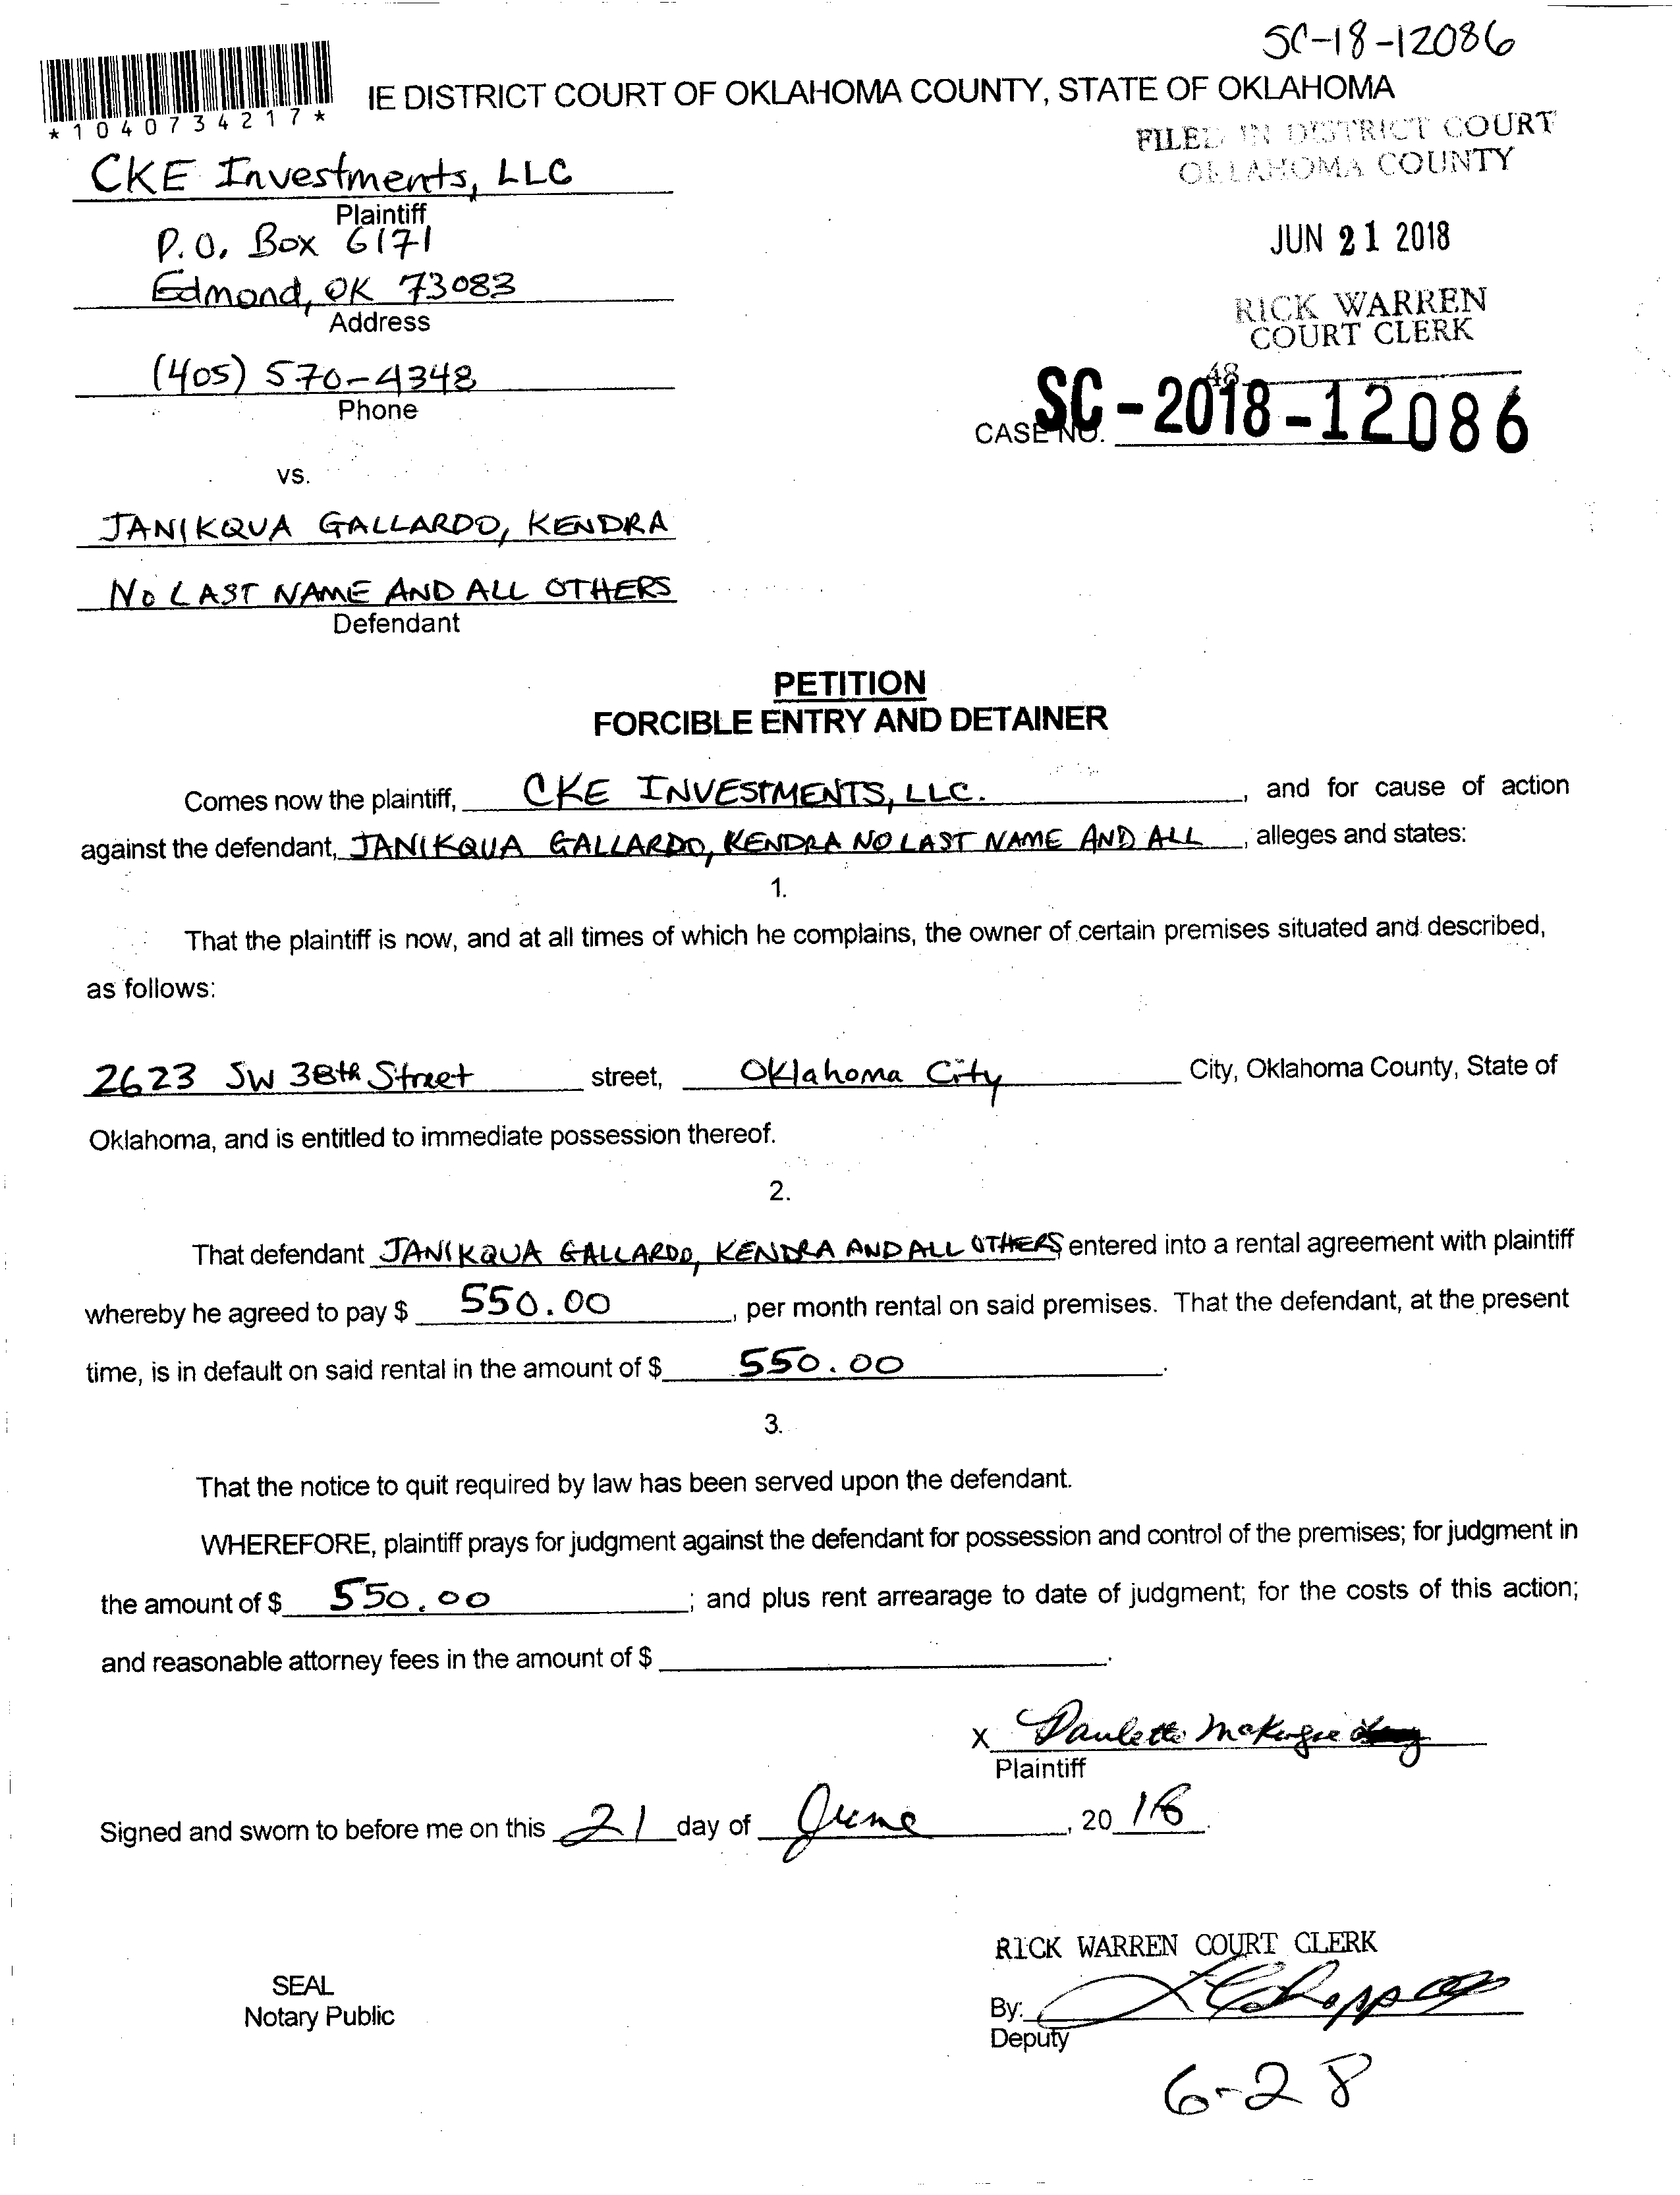 SC-18-12086
*1040734217*
IE DISTRICT COURT OF OKLAHOMA COUNTY, STATE OF OKLAHOMA
FILED IN DISTRICT COURT
OKLAHOMA COUNTY
CKE Investments, LLC
Plaintiff
P.O. Box 6171
JUN 21 2018
Edmond, OK 73083
Address
RICK WARREN
COURT CLERK
(405) 570-4348
Phone
48
CASE NO. SC-2018-12086
vs.
JANIKQUA GALLARDO, KENDRA
NO LAST NAME AND ALL OTHERS
Defendant
PETITION
FORCIBLE ENTRY AND DETAINER
Comes now the plaintiff, CKE INVESTMENTS, LLC. , and for cause of action
against the defendant, JANIKQUA GALLARDO, KENDRA NO LAST NAME AND ALL , alleges and states:
1.
That the plaintiff is now, and at all times of which he complains, the owner of certain premises situated and described,
as follows:
2623 SW 38th Street street, Oklahoma City City, Oklahoma County, State of
Oklahoma, and is entitled to immediate possession thereof.
2.
That defendant JANIKQUA GALLARDO, KENDRA AND ALL OTHERS entered into a rental agreement with plaintiff
whereby he agreed to pay $ 550.00 , per month rental on said premises. That the defendant, at the present
time, is in default on said rental in the amount of $ 550.00 .
3.
That the notice to quit required by law has been served upon the defendant.
WHEREFORE, plaintiff prays for judgment against the defendant for possession and control of the premises; for judgment in
the amount of $ 550.00 ; and plus rent arrearage to date of judgment; for the costs of this action;
and reasonable attorney fees in the amount of $ .
X Paulette
Plaintiff
Signed and sworn to before me on this 21 day of June , 20 18 .
RICK WARREN COURT CLERK
SEAL
Notary Public
By:
Deputy
6-28